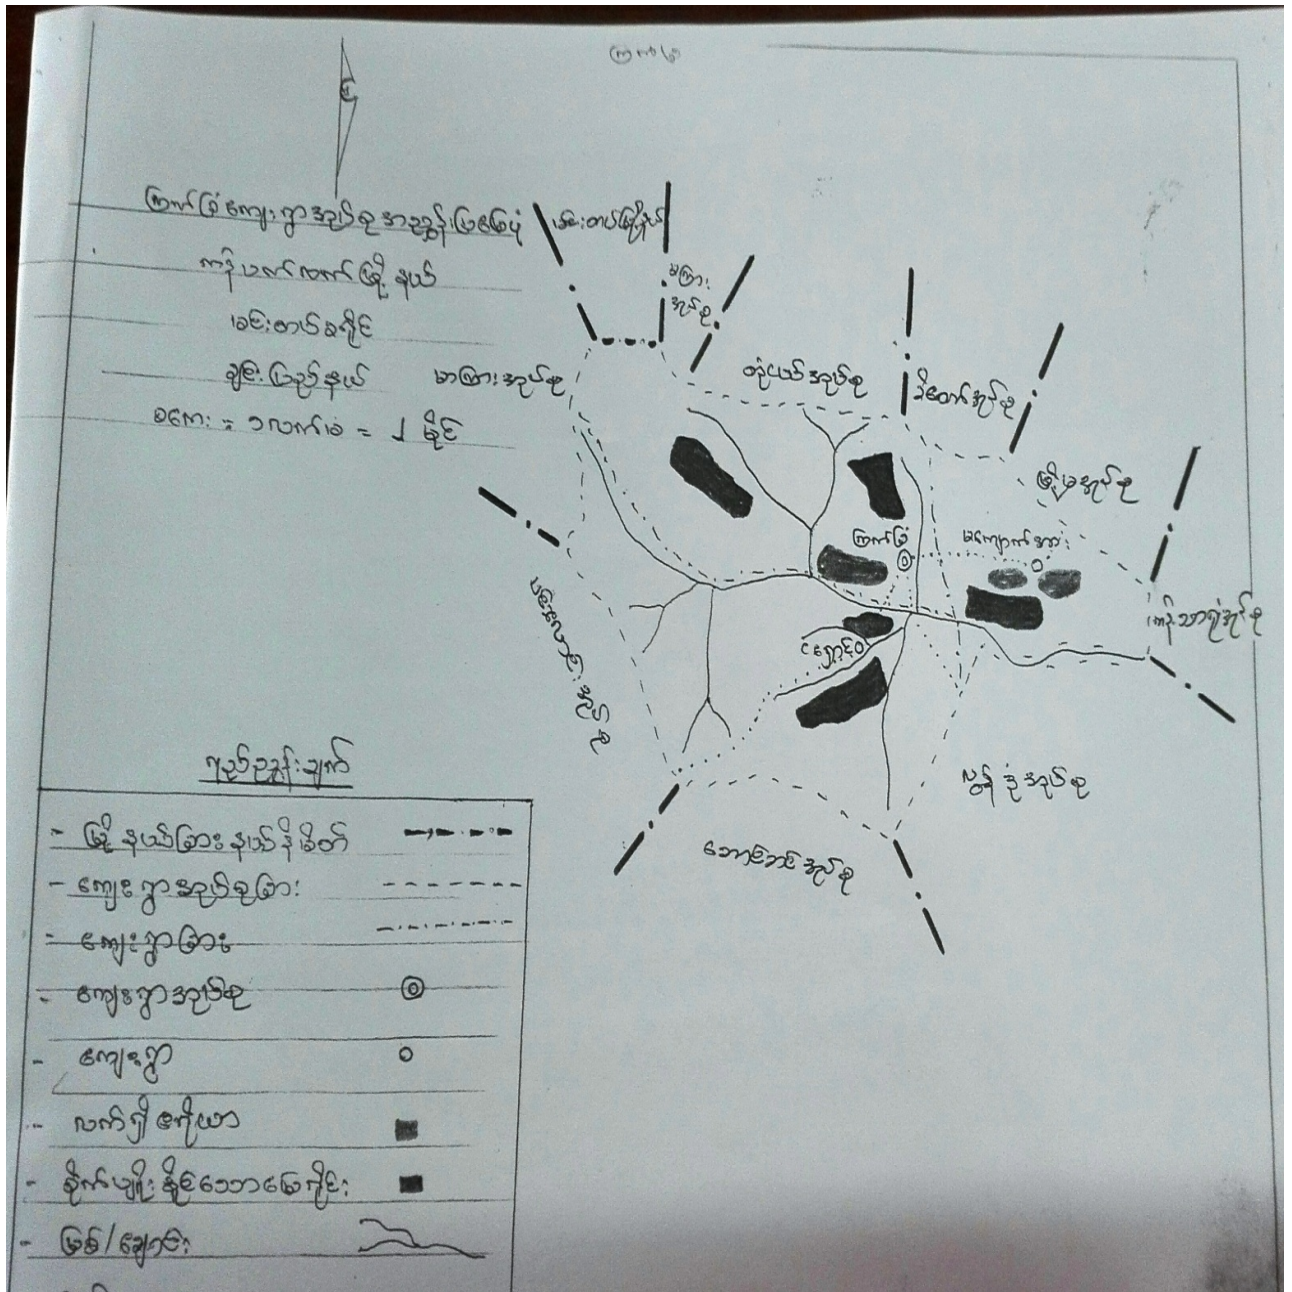 ကြက်ခြံ
ကြက်ခြံကျေးရွာအုပ်စုအညွှန်းပြမြေပုံ
ကန်ပက်လက်မြို့နယ်
မင်းတပ်ခရိုင်
ချင်းပြည်နယ်
စကေး = ၁လက်မ = ၂ မိုင်
မင်းတပ်မြို့နယ်
မကြား
အုပ်စု
မကြားအုပ်စု
အုပ်စု
မြို့မအုပ်စု
ကြက်ခြံ
မကျောက်အား
အုပ်စု
အုပ်စု
အုပ်စု
အုပ်စု
ရည်ညွှန်းချက်
- မြို့နယ်ခြားနယ်နိမိတ်
- ကျေးရွာအုပ်စုခြား
- ကျေးရွာခြား
- ကျေးရွာအုပ်စု
- ကျေးရွာ
- လက်ရှိဧရိယာ
- စိုက်ပျိုးနိုင်သောမြေရိုင်း
- မြစ်/ချောင်း